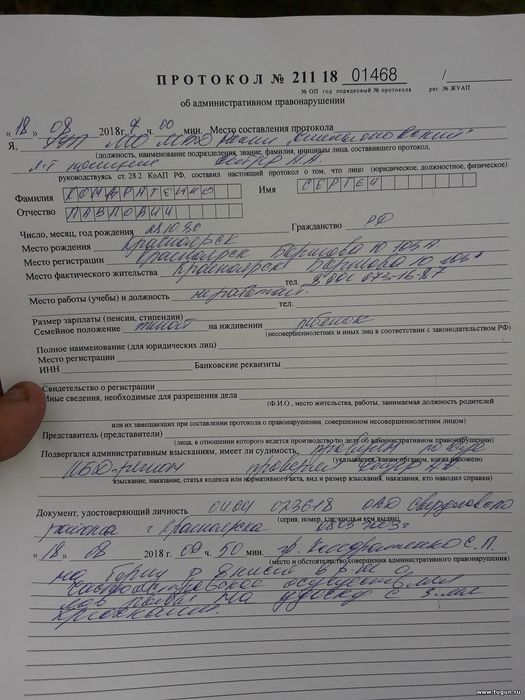 ПРОТОКОЛ № 211 18 01468 /
№ ОП год порядковый № протокола рег. № ЖУАП
об административном правонарушении
« 18 » 08 2018 г. ч. 00 мин. Место составления протокола
Я, УУП МО МВД России
(должность, наименование подразделения, звание, фамилия, инициалы лица, составившего протокол,
л-т полиции
руководствуясь ст. 28.2 КоАП РФ, составил настоящий протокол о том, что лицо (юридическое, должностное, физическое):
Фамилия КОНДРАТЕНКО Имя СЕРГЕЙ
Отчество ПАВЛОВИЧ
Число, месяц, год рождения 28.10.80 Гражданство РФ
Место рождения Красноярск
Место регистрации Красноярск 103А
Место фактического жительства Красноярск 103а
тел.
Место работы (учебы) и должность не работает. тел.
Размер зарплаты (пенсии, стипендии)
Семейное положение на иждивении ребенок
(несовершеннолетних и иных лиц в соответствии с законодательством РФ)
Полное наименование (для юридических лиц)
Место регистрации
ИНН Банковские реквизиты
Свидетельство о регистрации
Иные сведения, необходимые для разрешения дела
(Ф.И.О., место жительства, работы, занимаемая должность родителей
или их замещающих при составлении протокола о правонарушении, совершенном несовершеннолетним лицом)
Представитель (представители)
(лица, в отношении которого ведется производство по делу об административном правонарушении)
Подвергался административным взысканиям, имеет ли судимость, проверен по
(указывается, каким органом, когда наложено
ИБД-Регион проверил
взыскание, наказание, статья кодекса или нормативного акта, вид и размер взыскания, наказания, кто наводил справки)
Документ, удостоверяющий личность 0404 023618 ОВД Свердловского
(серия, номер, где, когда и кем выдан)
района г. Красноярска
« 18 » 08 2018 г. 00 ч. 50 мин. гр. Кондратенко С.П.
(место и обстоятельство совершения административного правонарушения)
на берегу р. Енисей
осуществлял
лов рыбы на удочку с 3-мя
крючками.
www.tugun.ru